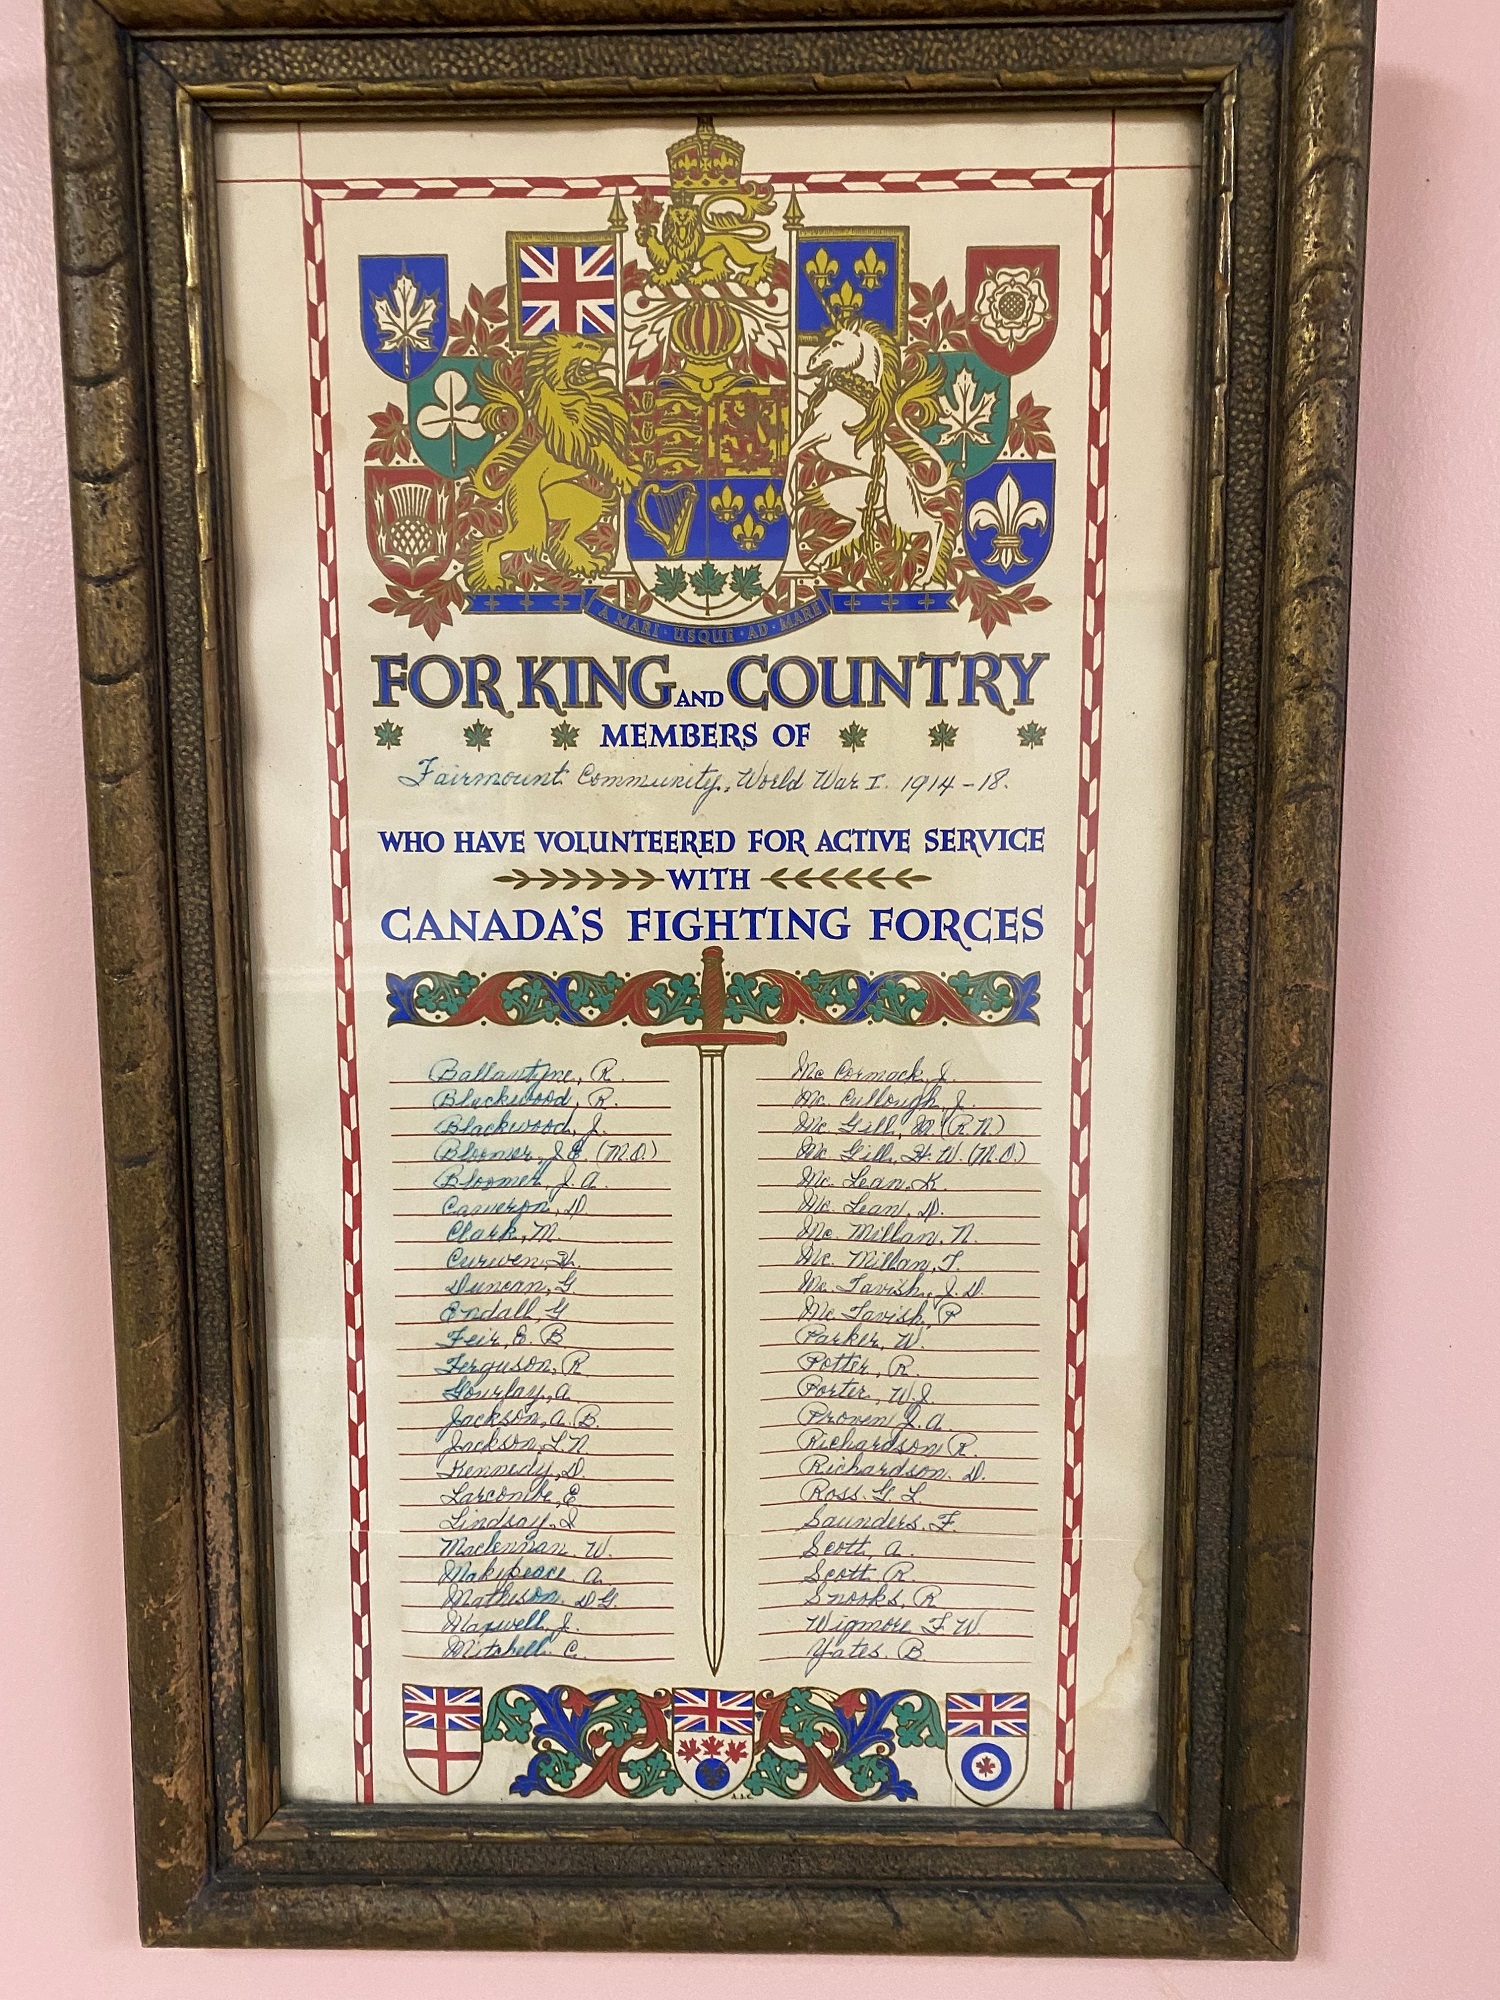 A MARI · USQUE · AD · MARE
FOR KING AND COUNTRY
MEMBERS OF
Fairmount Community, World War I. 1914-18.
WHO HAVE VOLUNTEERED FOR ACTIVE SERVICE
WITH
CANADA'S FIGHTING FORCES
Ballantyne, R.
Blackwood, R.
Blackwood, J.
Bloomer, J E. (M.D.)
Bloomer, J. A.
Cameron, D.
Clark, M.
Curwen, H.
Duncan, G.
Endall, G
Feir, E. B
Ferguson, R
Gourlay, A
Jackson, A. B.
Jackson, L. N.
Kennedy, D.
Larcombe, E
Lindsay, J
Maclennan, W.
Makepeace, A.
Matheson, D G.
Maxwell, J.
Mitchell, C.
Mc Cormack, J.
Mc. Cullough, J.
Mc Gill, M. (R. N.)
Mc. Gill, H. W. (M.D.)
Mc. Lean, K.
Mc. Lean, D.
Mc. Millan, N.
Mc. Millan, T.
Mc. Tavish, J. D.
Mc Tavish, P
Parker, W.
Potter, R.
Porter, W. J.
Proven J. A.
Richardson R.
Richardson. D.
Ross. G. L.
Saunders. F.
Scott, A.
Scott R.
Snooks, R
Wigmore F. W.
Yates. B.
A.J.C.